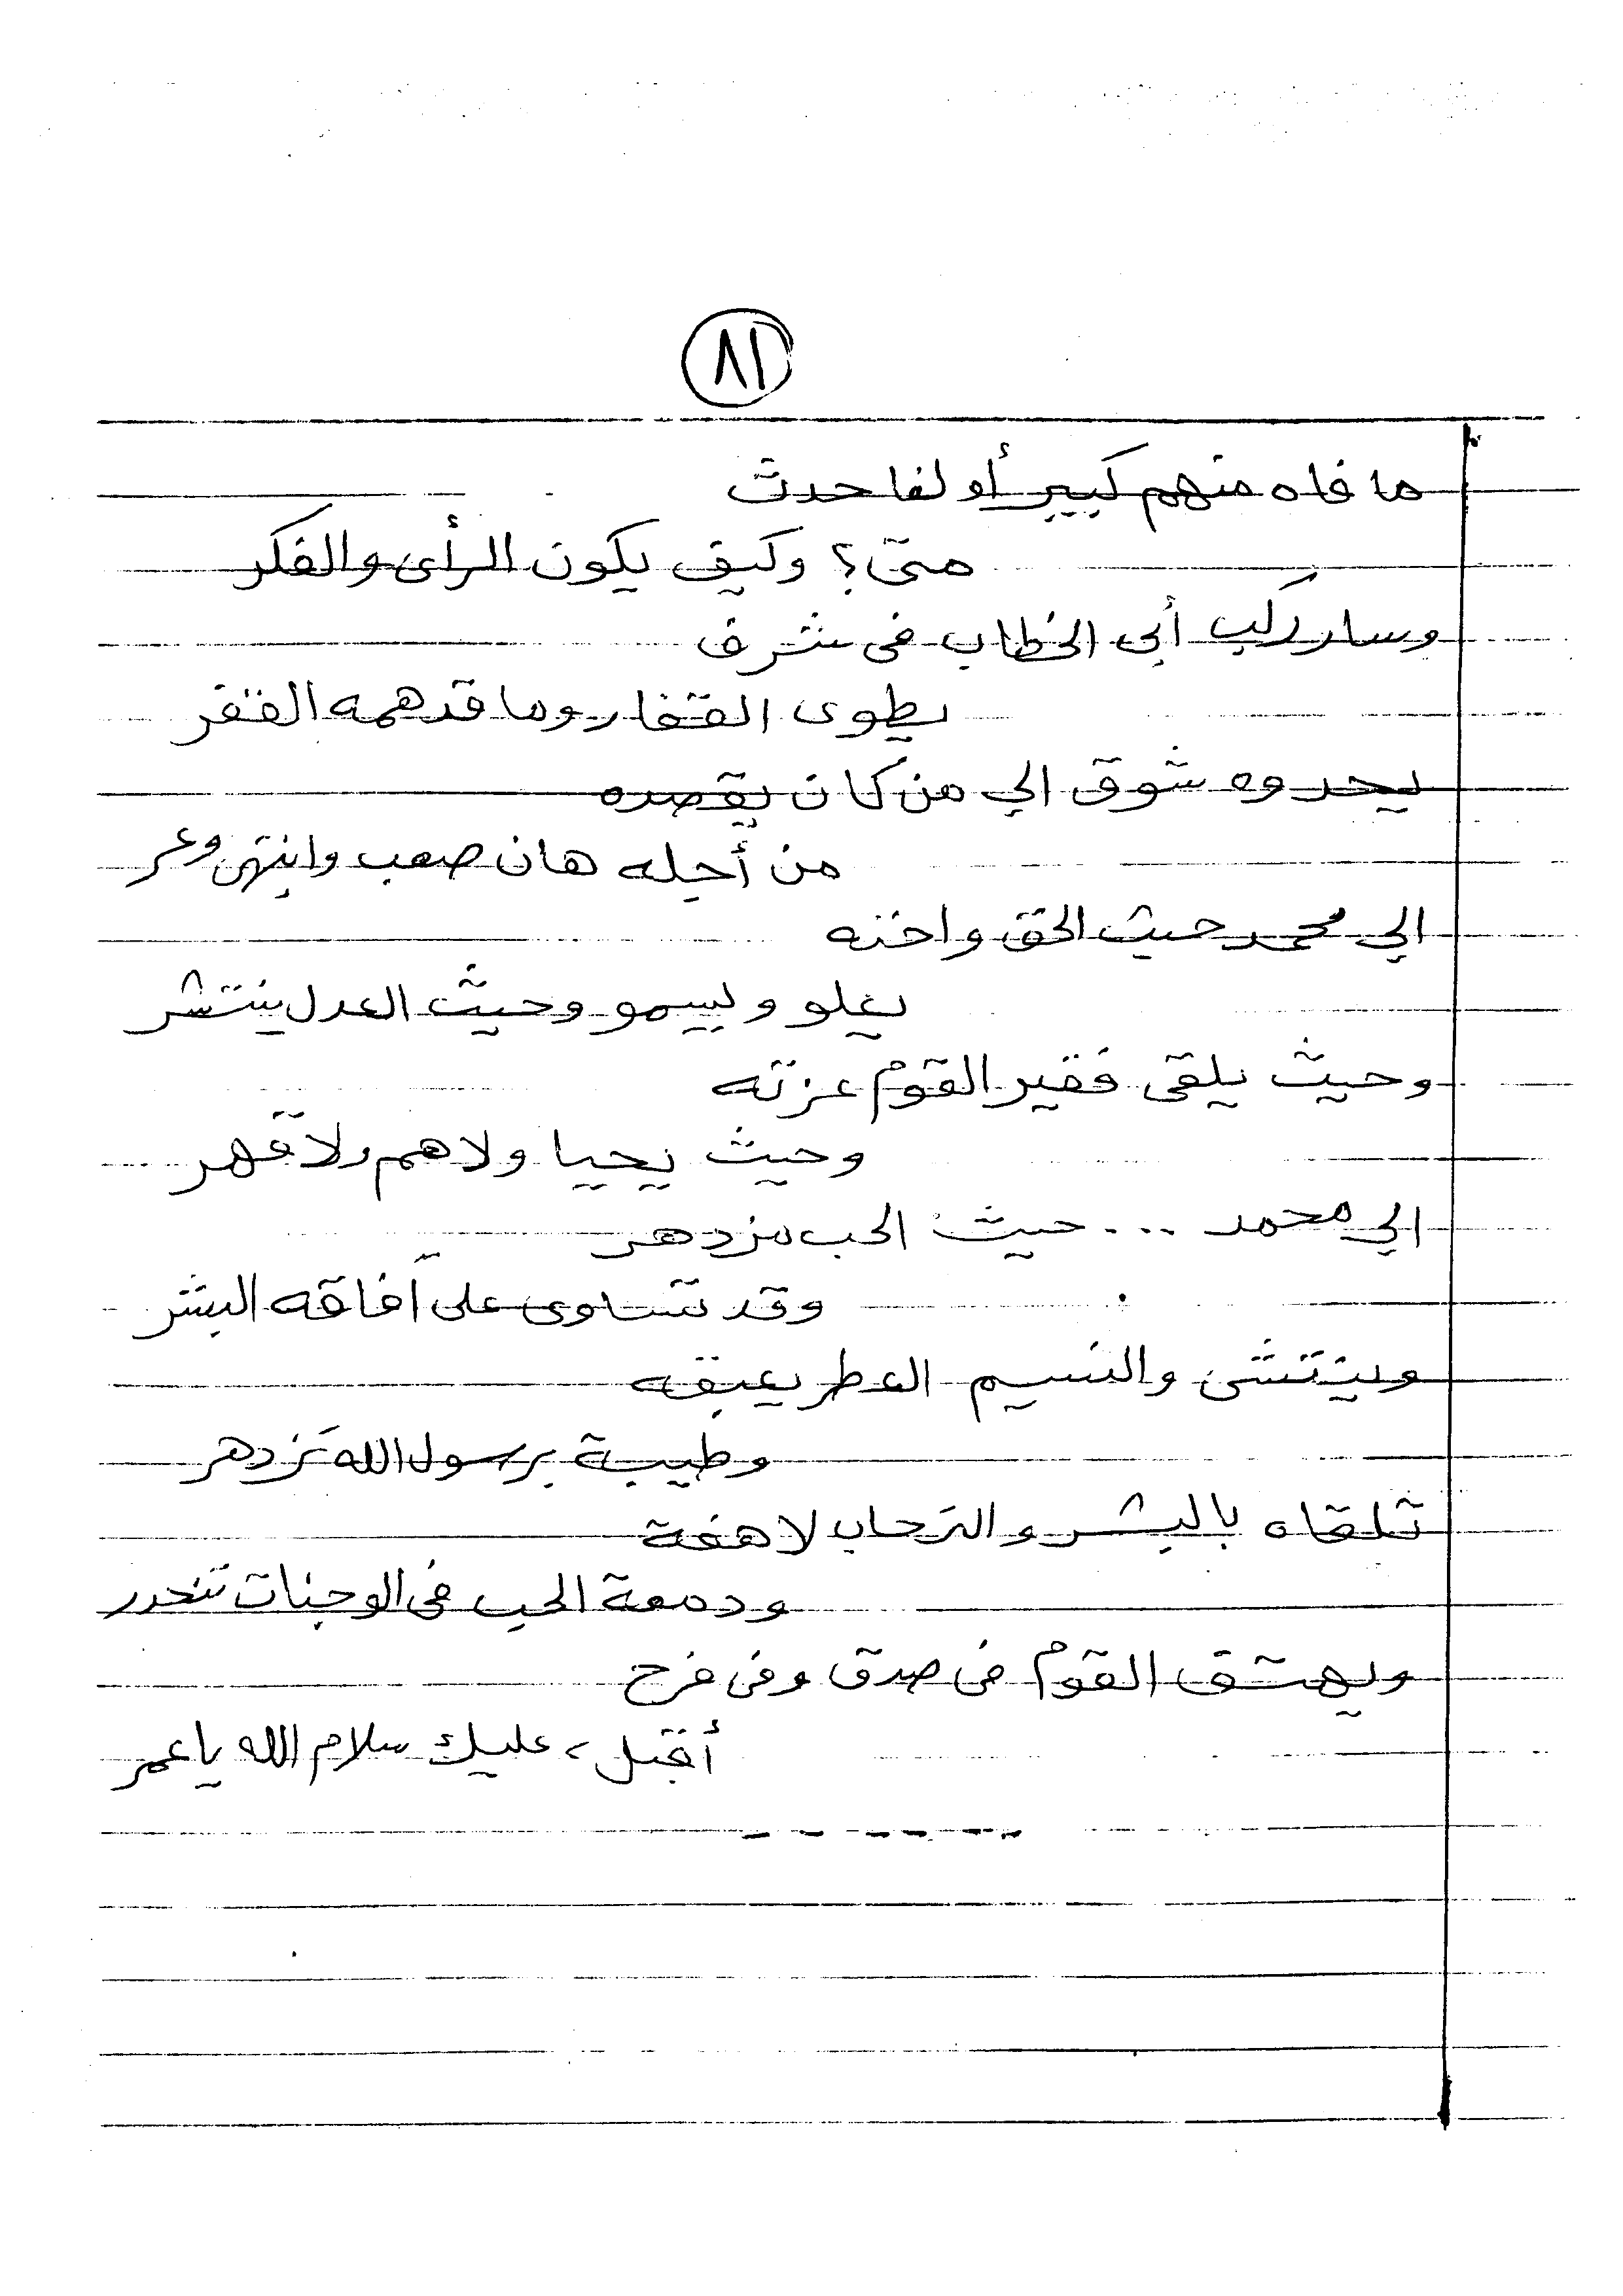 ٨١
ما فاه منهم كبير أو لغا حدث
متى؟ وكيف يكون الرأى والفكر
وسار ركب أبى الخطاب فى شرف
يطوى القفار وما قد همه القفر
يحدوه شوق الي من كان يقصده
من أجله هان صعب وانتهى وعر
الي محمد حيث الحق واضحه
يعلو ويسمو وحيث العدل ينتشر
وحيث يلقى فقير القوم عزته
وحيث يحيا ولا هم ولا قهر
الي محمد ... حيث الحب مزدهر
وقد تساوى على آفاقه البشر
وينتشى والنسيم العطر يعبقه
وطيبة برسول الله تزدهر
تلقاه بالبشر والترحاب لاهفة
ودمعة الحب فى الوجنات تنحدر
ويهتف القوم فى صدق وفى فرح
أقبل، عليك سلام الله يا عمر